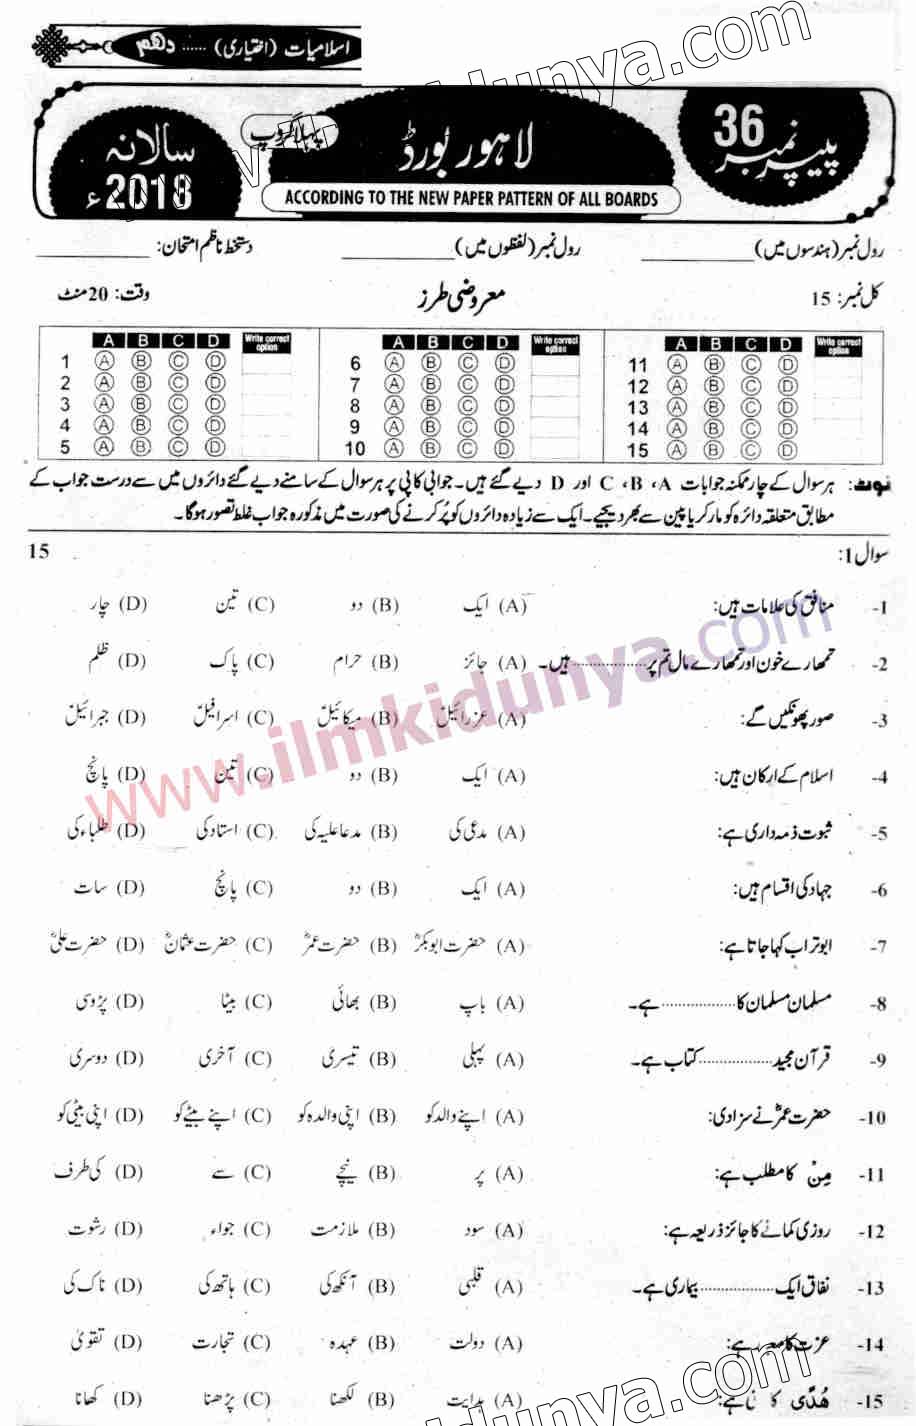 اسلامیات (اختیاری) ...... دھم
پیپر نمبر 36
پہلا گروپ
لاہور بورڈ
سالانہ 2018ء
ACCORDING TO THE NEW PAPER PATTERN OF ALL BOARDS
رول نمبر (ہندسوں میں) __________ رول نمبر (لفظوں میں) __________ دستخط ناظم امتحان: __________
کل نمبر: 15 معروضی طرز وقت: 20 منٹ
A B C D Write correct option A B C D Write correct option A B C D Write correct option
1 A B C D 6 A B C D 11 A B C D
2 A B C D 7 A B C D 12 A B C D
3 A B C D 8 A B C D 13 A B C D
4 A B C D 9 A B C D 14 A B C D
5 A B C D 10 A B C D 15 A B C D
نوٹ: ہر سوال کے چار ممکنہ جوابات A، B، C اور D دیے گئے ہیں۔ جوابی کاپی پر ہر سوال کے سامنے دیے گئے دائروں میں سے درست جواب کے
مطابق متعلقہ دائرہ کو مارکر یا پین سے بھر دیجیے۔ ایک سے زیادہ دائروں کو پُر کرنے کی صورت میں مذکورہ جواب غلط تصور ہوگا۔
سوال 1: 15
1- منافق کی علامات ہیں: (A) ایک (B) دو (C) تین (D) چار
2- تمھارے خون اور تمھارے مال تم پر .................. ہیں۔ (A) جائز (B) حرام (C) پاک (D) ظلم
3- صور پھونکیں گے: (A) عزرائیلؑ (B) میکائیلؑ (C) اسرافیلؑ (D) جبرائیلؑ
4- اسلام کے ارکان ہیں: (A) ایک (B) دو (C) تین (D) پانچ
5- ثبوت ذمہ داری ہے: (A) مدعی کی (B) مدعا علیہ کی (C) استاد کی (D) طلباء کی
6- جہاد کی اقسام ہیں: (A) ایک (B) دو (C) پانچ (D) سات
7- ابوتراب کہا جاتا ہے: (A) حضرت ابوبکرؓ (B) حضرت عمرؓ (C) حضرت عثمانؓ (D) حضرت علیؓ
8- مسلمان مسلمان کا .................. ہے۔ (A) باپ (B) بھائی (C) بیٹا (D) پڑوسی
9- قرآن مجید .................. کتاب ہے۔ (A) پہلی (B) تیسری (C) آخری (D) دوسری
10- حضرت عمرؓ نے سزا دی: (A) اپنے والد کو (B) اپنی والدہ کو (C) اپنے بیٹے کو (D) اپنی بیٹی کو
11- مِنْ کا مطلب ہے: (A) پر (B) نیچے (C) سے (D) کی طرف
12- روزی کمانے کا جائز ذریعہ ہے: (A) سود (B) ملازمت (C) جواء (D) رشوت
13- نفاق ایک .................. بیماری ہے۔ (A) قلبی (B) آنکھ کی (C) ہاتھ کی (D) ناک کی
14- عزت کا معیار ہے: (A) دولت (B) عہدہ (C) تجارت (D) تقویٰ
15- ھُدًی کا ہے: (A) ہدایت (B) لکھنا (C) پڑھنا (D) کھانا
www.ilmkidunya.com